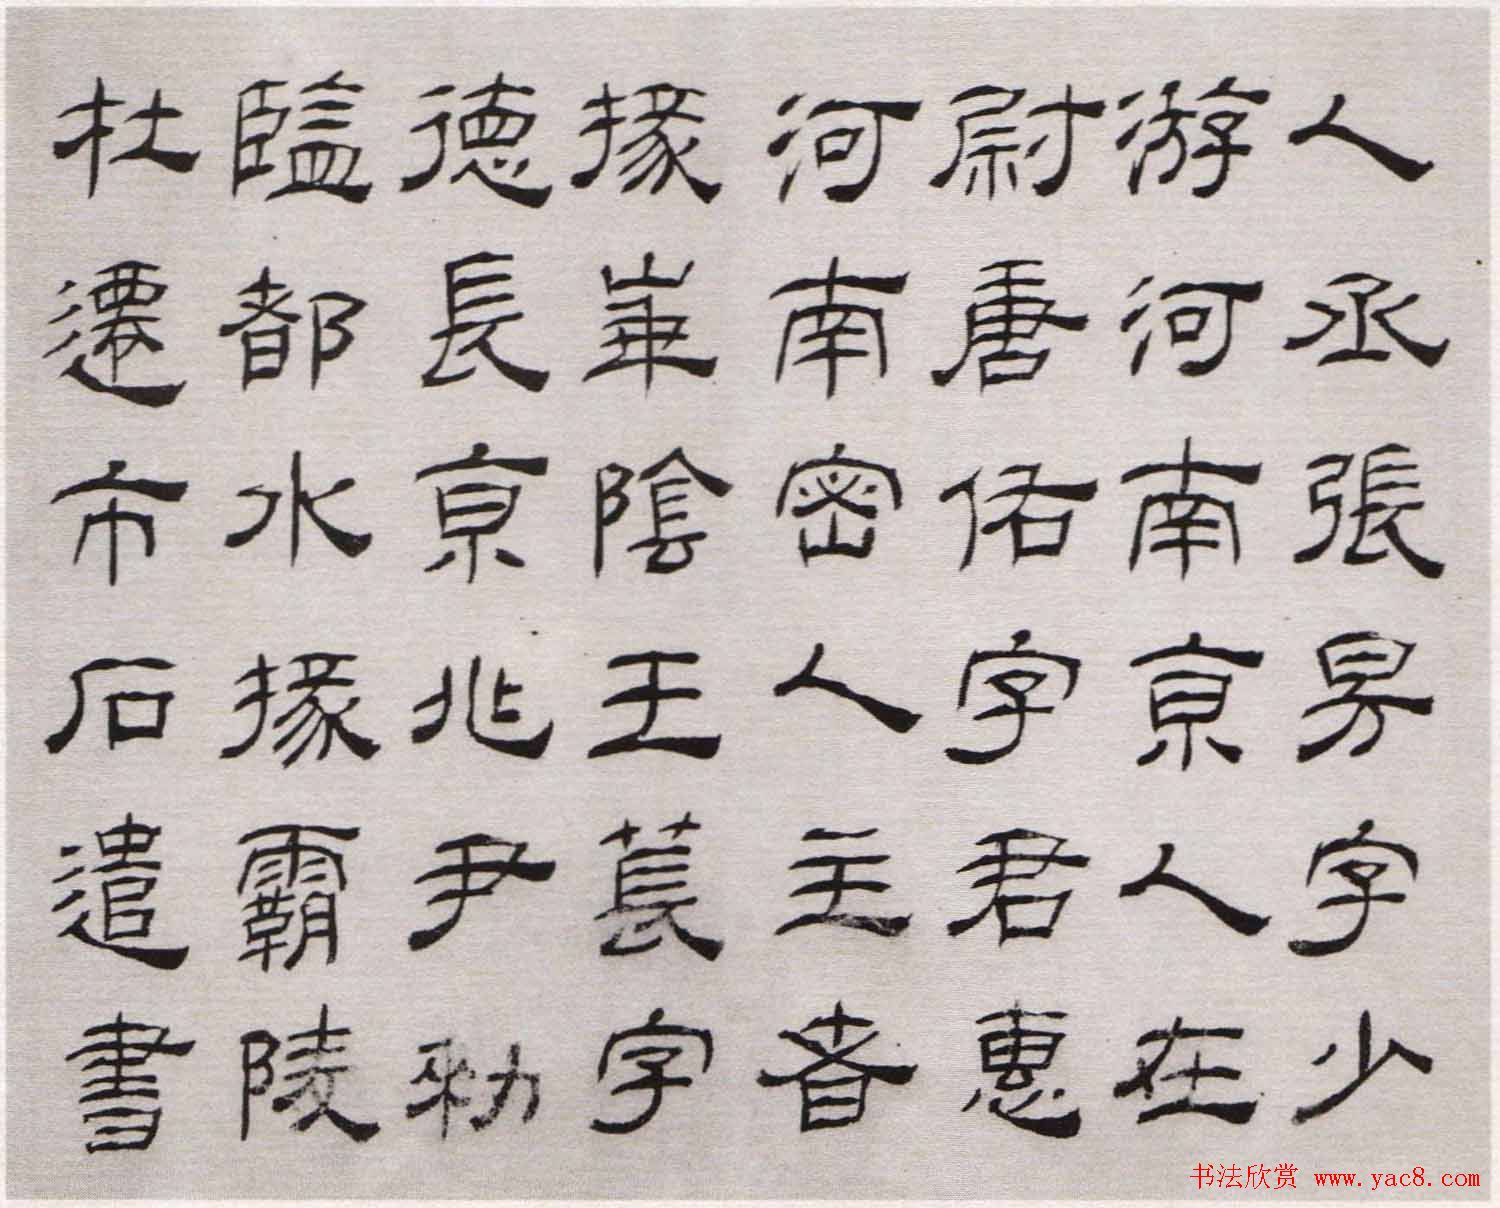 人丞張昉字少
游河南京人在
尉唐佑字君惠
河南密人主者
掾華陰王萇字
德長京兆尹勑
監都水掾霸陵
杜遷市石遣書
书法欣赏 www.yac8.com